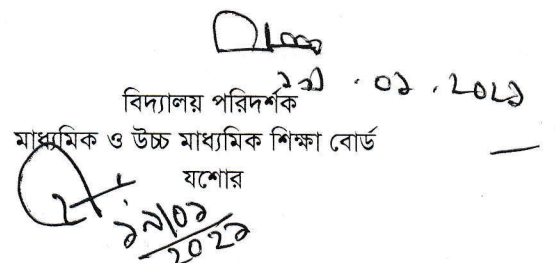 ১৯.০১.২০২১
বিদ্যালয় পরিদর্শক
মাধ্যমিক ও উচ্চ মাধ্যমিক শিক্ষা বোর্ড
যশোর
১৯/০১
২০২১